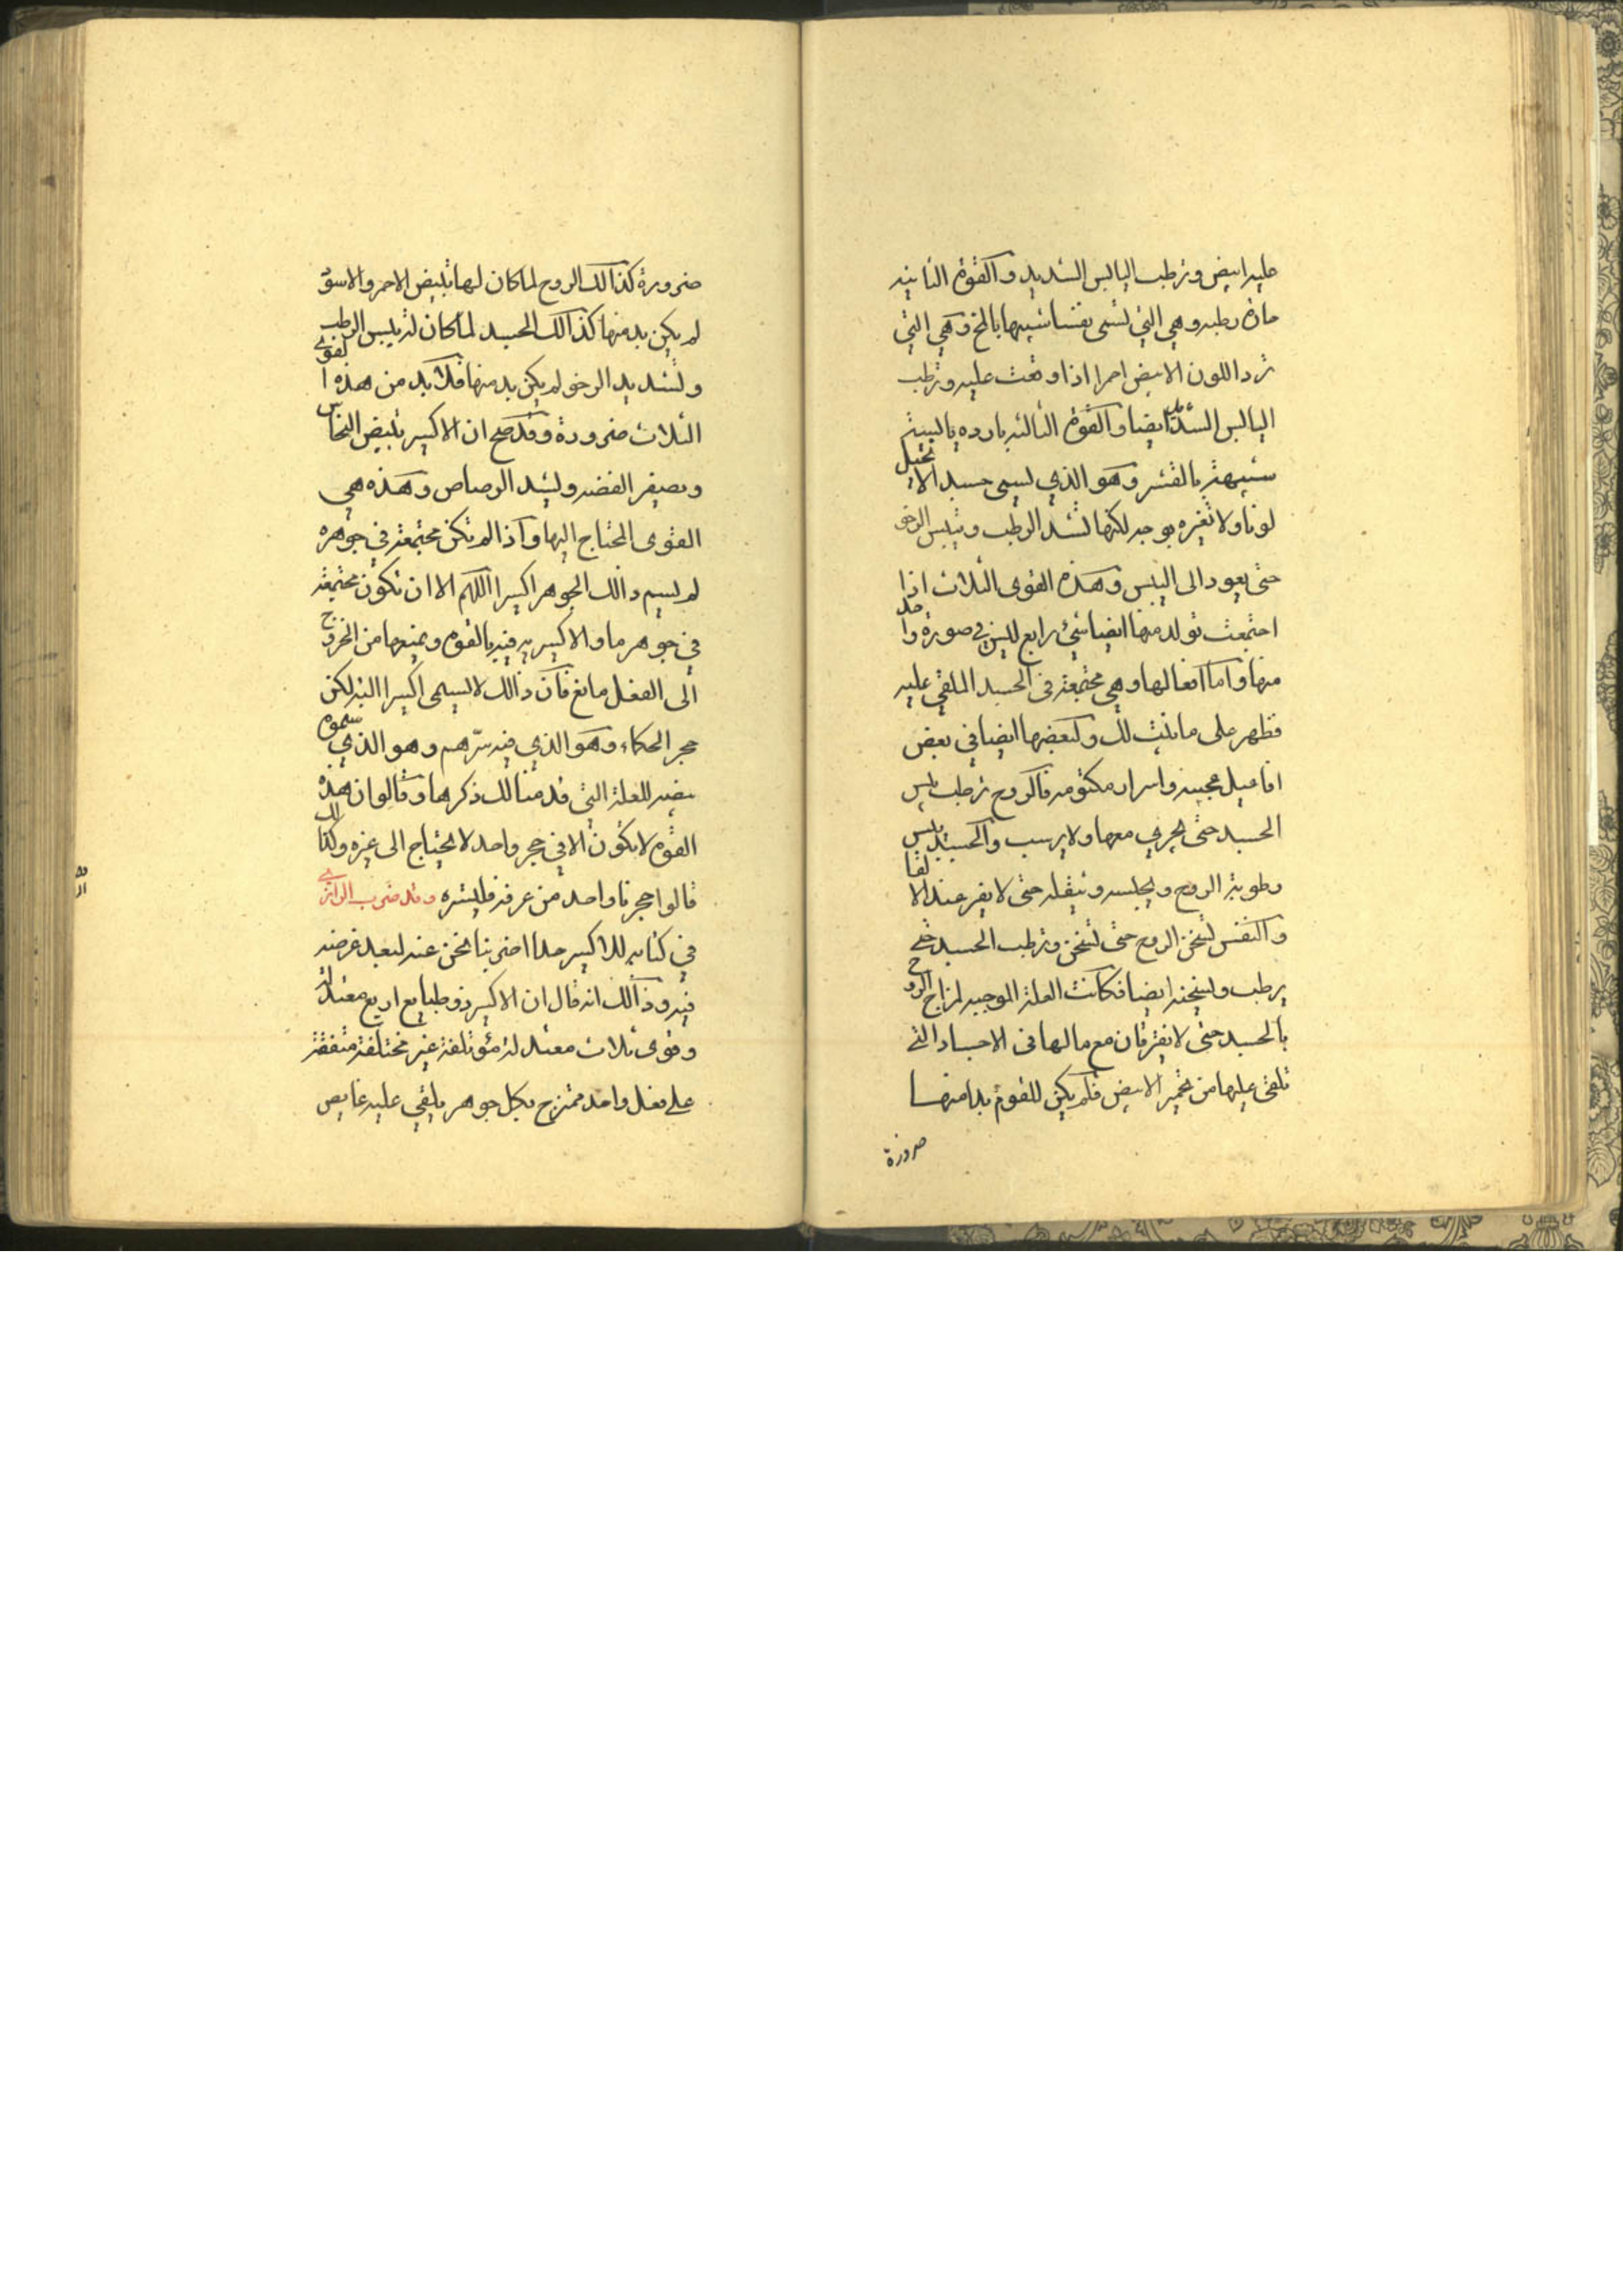 عليه ابيض وترطب اليابس الشديد والقوة الثانيه
حارة رطبه وهي التي تسمى نفسا شبيها بالمخ وهي التي
ترد اللون الابيض احمرا اذا وقعت عليه وترطب
اليابس الشديد ايضا والقوة الثالثه بارده يابسة
شبيهة بالقشر وهو الذي يسمى جسد الا يحيل
لونا ولا تغيره بوجه لكنها تشد الرطب وتيبس الرخو
حتى يعود الى اليبس وهذه القوى الثلاث اذا
اجتمعت تولد منها ايضا شئ رابع ليس في صورة واحد
منها واما افعالها وهي مجتمعة في الجسد الملقي عليه
فظهر على ما بنيت لك ولبعضها ايضا في بعض
افاعيل عجيبه واسرار مكتومه فالروح ترطب يبس
الجسد حتى يجري معها ولا يرسب والجسد ييبس
رطوبة الروح ويجلسه ويثقله حتى لا يفر عند الا لقا
والنفس تسخن الروح حتى تسخن وترطب الجسد حتى
يرطب وتسخنه ايضا فكانت العلة الموجبه لمزاج الروح
بالجسد حتى لا يفترقان مع مالها في الاجساد التي
تلقى عليها من تحمير الابيض فلم يكن للقوم بدا منها
ضرورة
ضرورة كذالك الروح لما كان لها تبييض الاحمر والاسود
لم يكن بد منها كذالك الجسد لما كان له تيبيس الرطب
وتشديد الرخو لم يكن بد منها فلا بد من هذه القوى
الثلاث ضرورة وقد صح ان الاكسير يبيض النحاس
ويصفر الفضه ويشد الرصاص وهذه هي
القوى المحتاج اليها واذا لم تكن مجتمعة في جوهره
لم يسم ذالك الجوهر اكسيرا اللهم الا ان تكون مجتمعة
في جوهر ما والاكسيريه فيه بالقوة ويمنعها من الخروج
الى الفعل مانع فان ذالك لا يسمى اكسيرا البته لكن
حجر الحكماء وهو الذي فيه سرهم وهو الذي سموه
بيضه للعلة التي قدمنا لك ذكرها وقالوا ان هذه
القوه لا تكون الا في حجر واحد لا يحتاج الى غيره ولذالك
قالوا حجرنا واحد من عرفه فليستره وقد ضرب الرازي
في كتابه للاكسير حدا اضربنا نحن عنه لبعد غرضه
فيه وذالك انه قال ان الاكسير ذو طبايع اربع معتدلة
وقوى ثلاث معتدلة مؤتلفة غير مختلفة متفقة
على فعل واحد ممتزج بكل جوهر يلقي عليه غايص